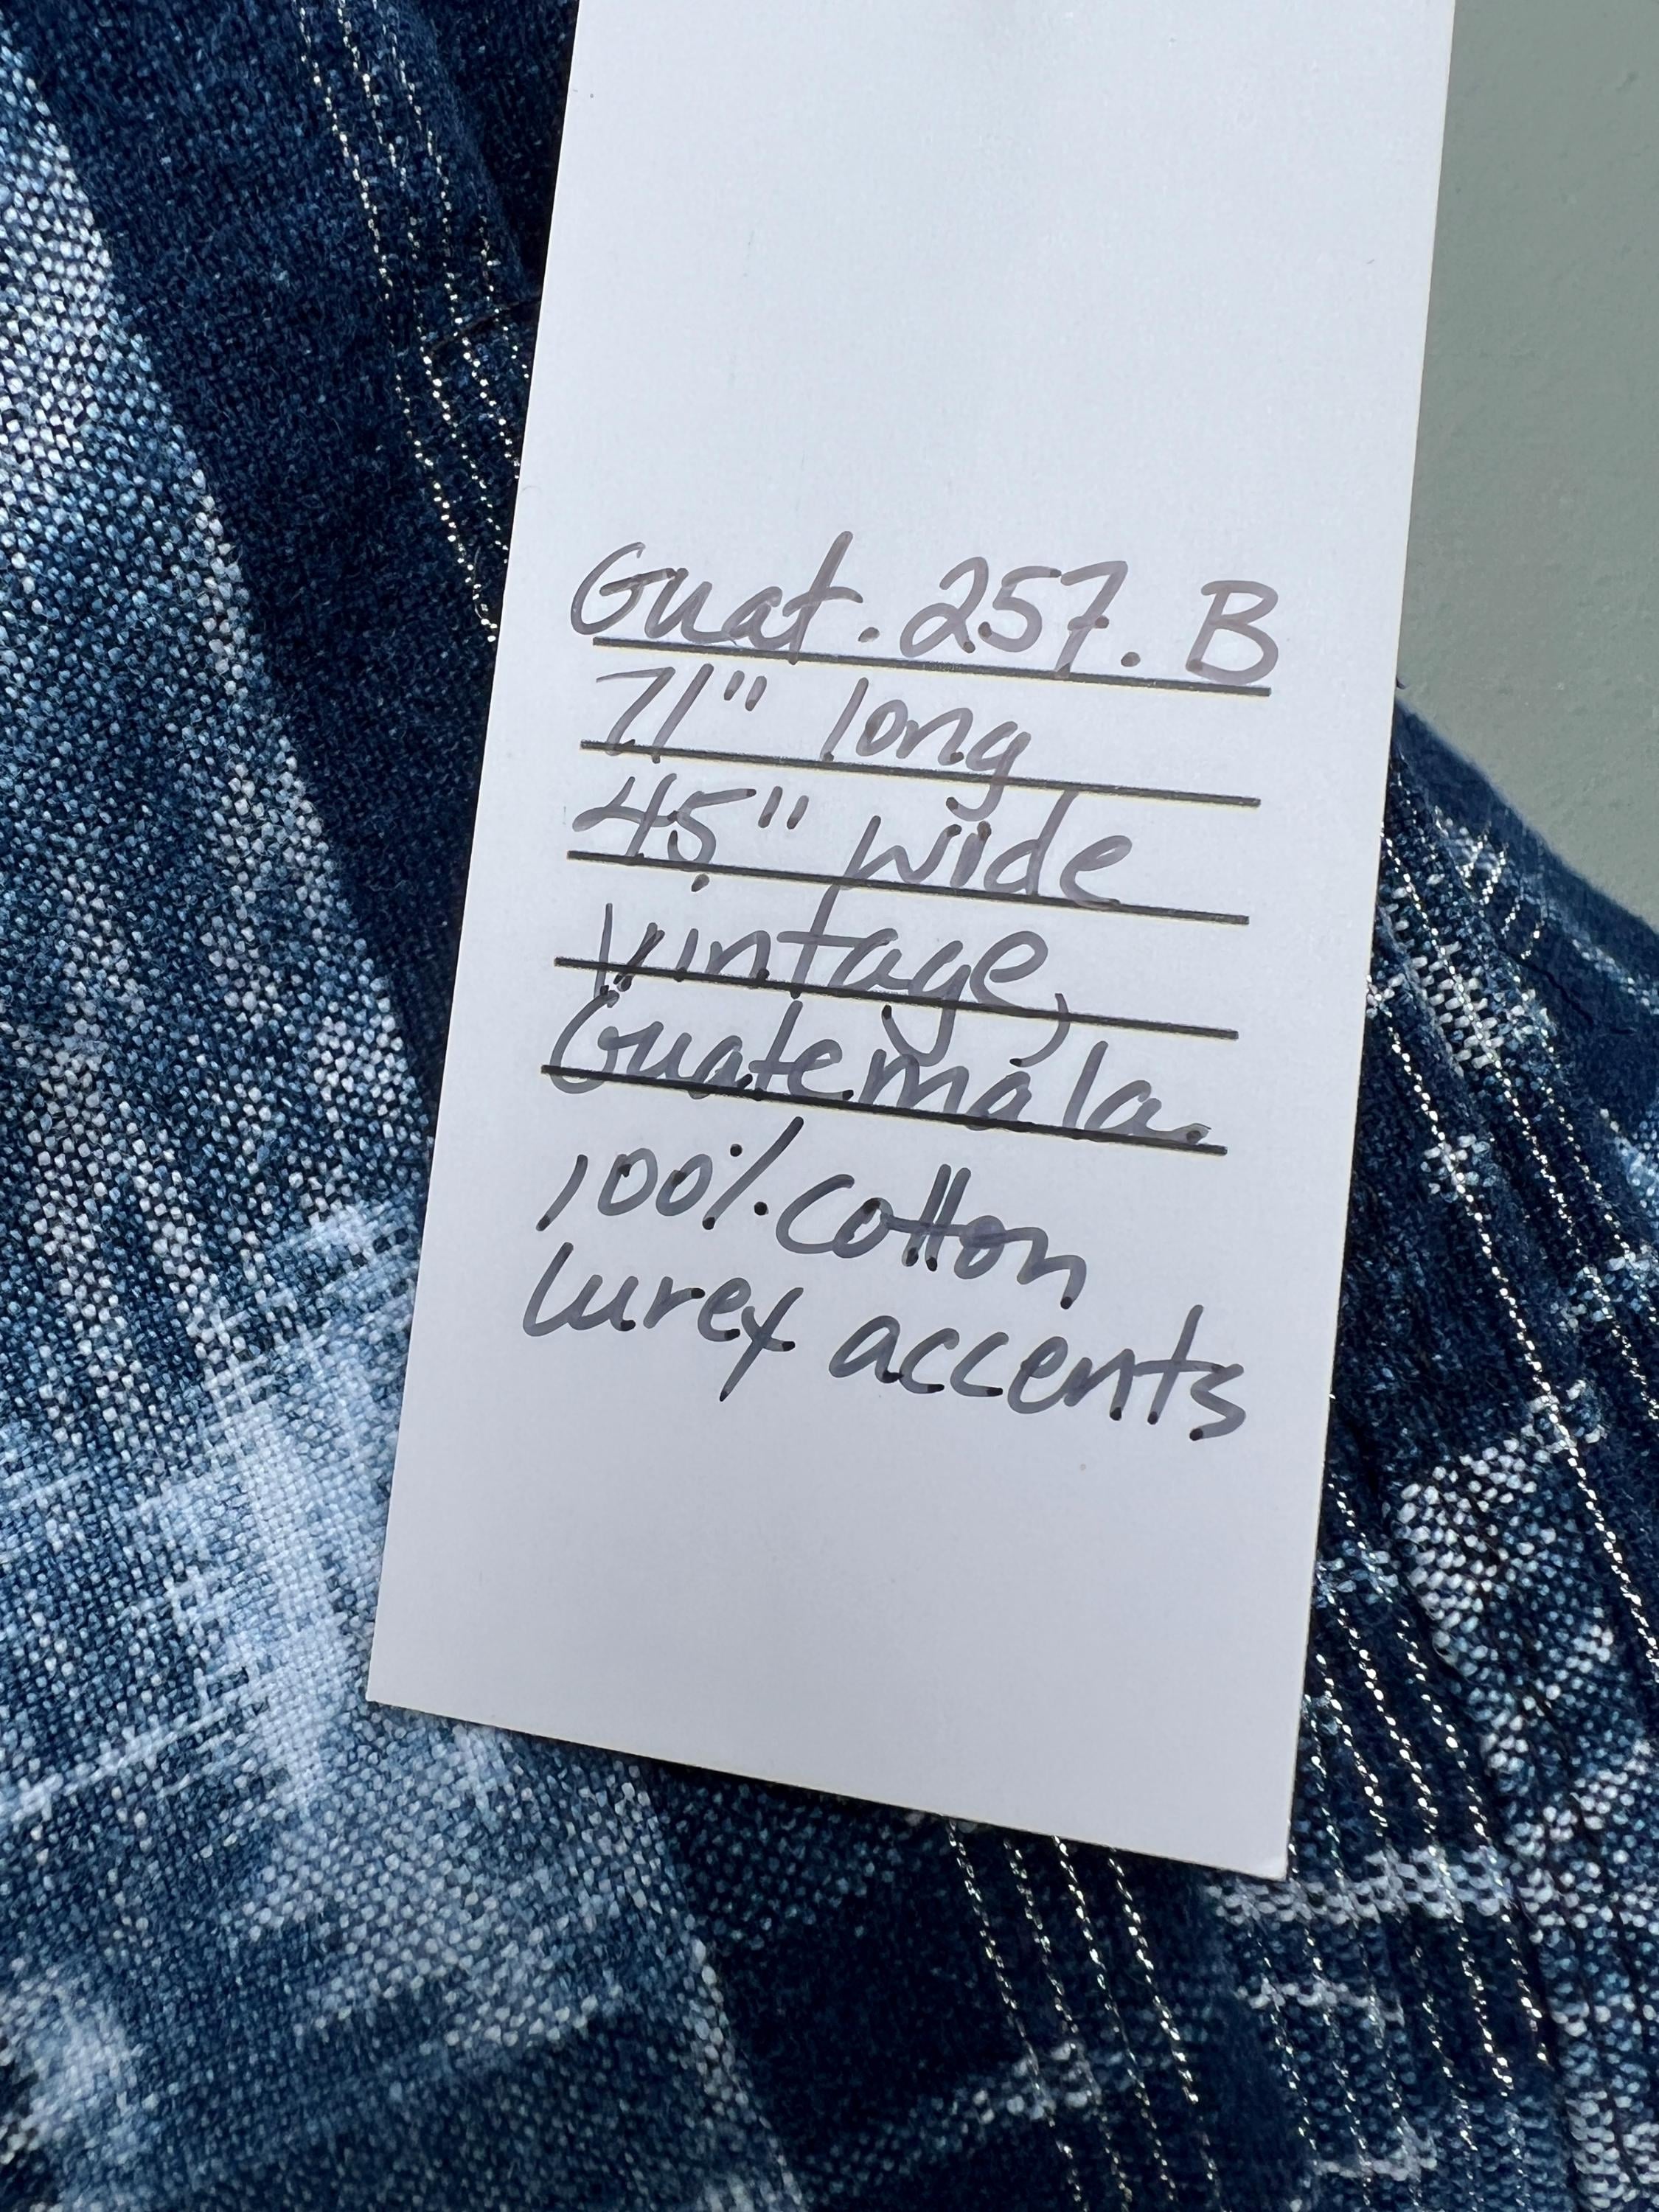 Guat. 257. B
71" long
45" wide
Vintage,
Guatemala.
100% Cotton
lurex accents